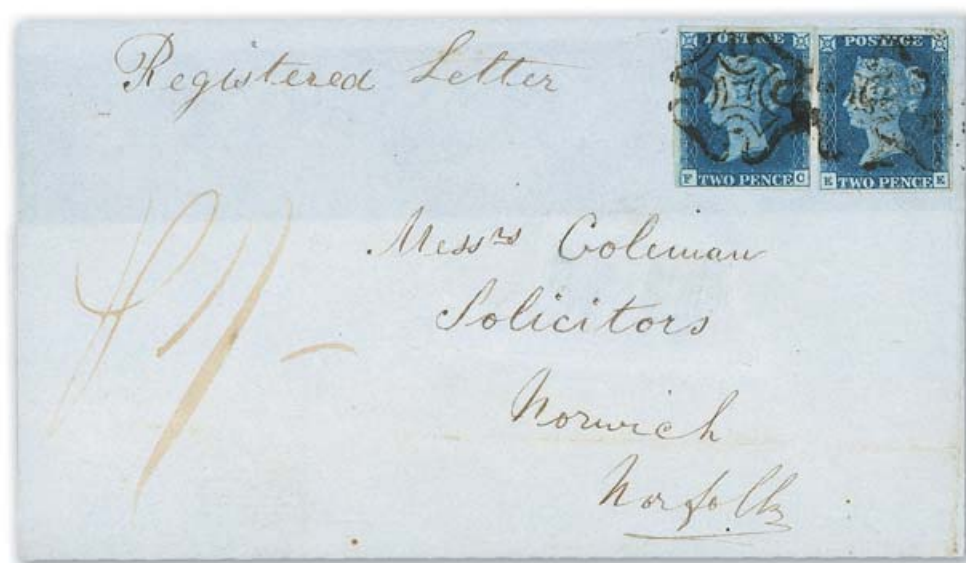 Registered Letter
POSTAGE POSTAGE
F TWO PENCE C E TWO PENCE E
Messrs Coleman
Solicitors
Norwich
Norfolk